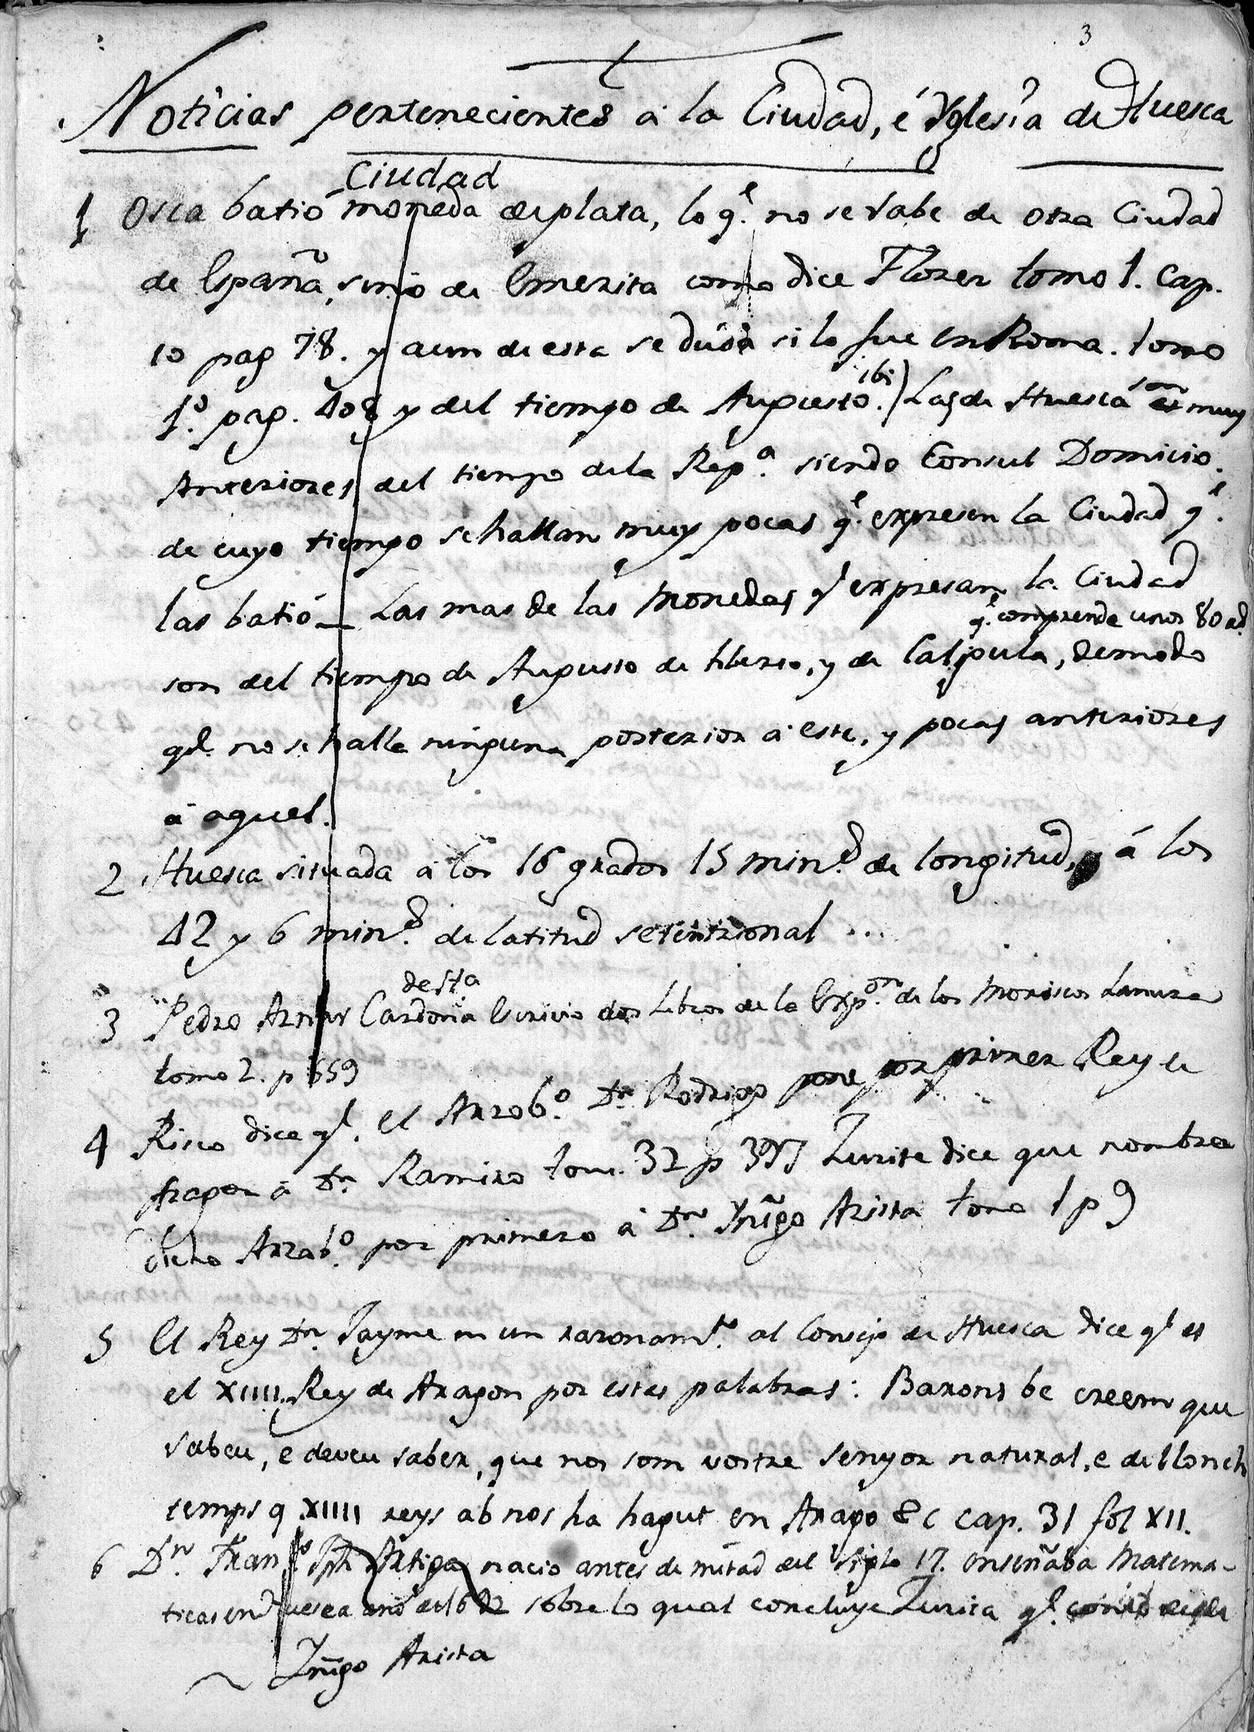 3
Noticias pertenecientes á la Ciudad, é Yglesia de Huesca
Ciudad
1 Osca batió moneda de plata, lo q.l no se sabe de otra Ciudad
de España, sino de Emerita como dice Florez tomo 1. Cap.
10 pag 78. y aun de esta se duda si lo fue en Roma. tomo
1.º pag. 408 y del tiempo de Augusto. ibi) Las de Huesca son muy
Anteriores del tiempo de la Rep.a siendo Consul Domicio.
de cuyo tiempo se hallan muy pocas q.e expresen la Ciudad q.e
las batió — Las mas de las Monedas q.e expresan la Ciudad
q.e comprende unos 80 a.s
son del tiempo de Augusto de tiberio, y de Caligula, de modo
q.e no se halle ninguna posterior á este, y pocas anteriores
á aquel.
2 Huesca situada á los 16 grados 15 min.s de longitud, y á los
42 y 6 min.s de latitud setentrional ...
desta
3 Pedro Aznar Cardona Escrivio dos Libros de la Exp.on de los Moriscos Lanuza
tomo 2. p 559
4 Risco dice q.e el Arzob.o D.n Rodrigo pone por primer Rey de
Aragon á D.n Ramiro tom. 32 p Zurita dice que nombra
dicho Arzob.o por primero á D.n Yñigo Arista tomo 1 p 9
5 El Rey D.n Jayme en un razonam.to al Consejo de Huesca dice q.e es
el XIIII. Rey de Aragon por estas palabras: Barons be creem que
sabeu, e deveu saber, que nos som vostre senyor natural, e de llonch
temps q XIIII reys ab nos ha hagut en Arago &c cap. 31 fol XII.
6 D.n Fran.co Jph Artiga nacio antes de mitad del siglo 17. enseñaba Matema-
ticas en Huesca año de 1682 sobre lo qual concluye Zurita q.e
Yñigo Arista